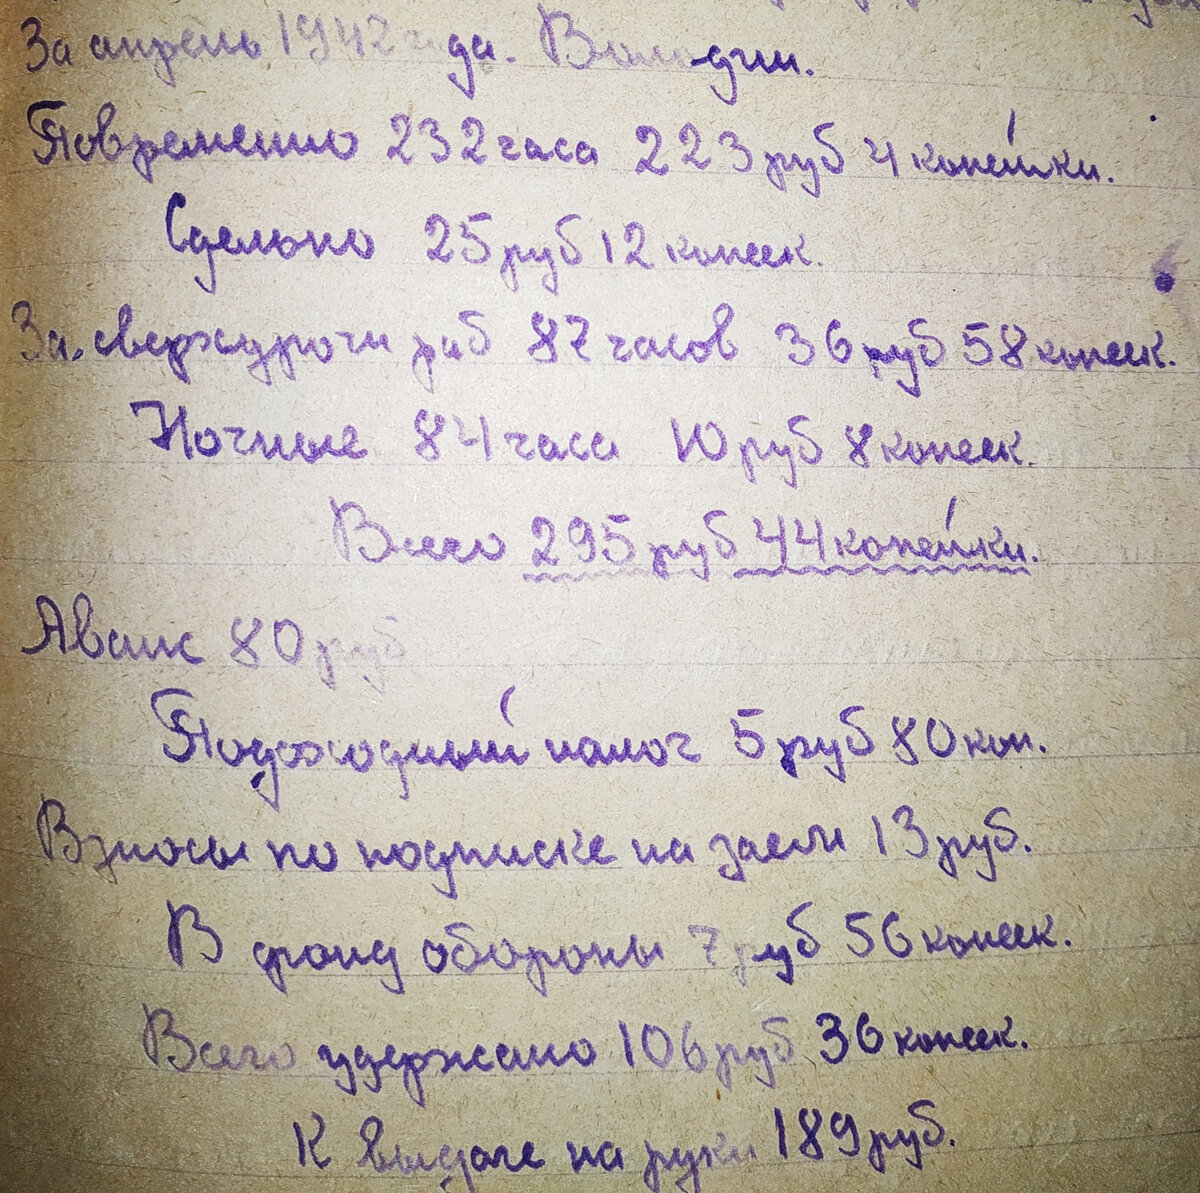 За апрель 1942 года. Володии.
Повременно 232 часа 223 руб 4 копейки.
Сдельно 25 руб 12 копеек.
За сверхурочн раб 87 часов 36 руб 58 копеек.
Ночные 84 часа 10 руб 8 копеек.
Всего 295 руб 44 копейки.
Аванс 80 руб
Подоходный налог 5 руб 80 коп.
Взносы по подписке на заем 13 руб.
В фонд обороны 7 руб 56 копеек.
Всего удержано 106 руб 36 копеек.
К выдаче на руки 189 руб.